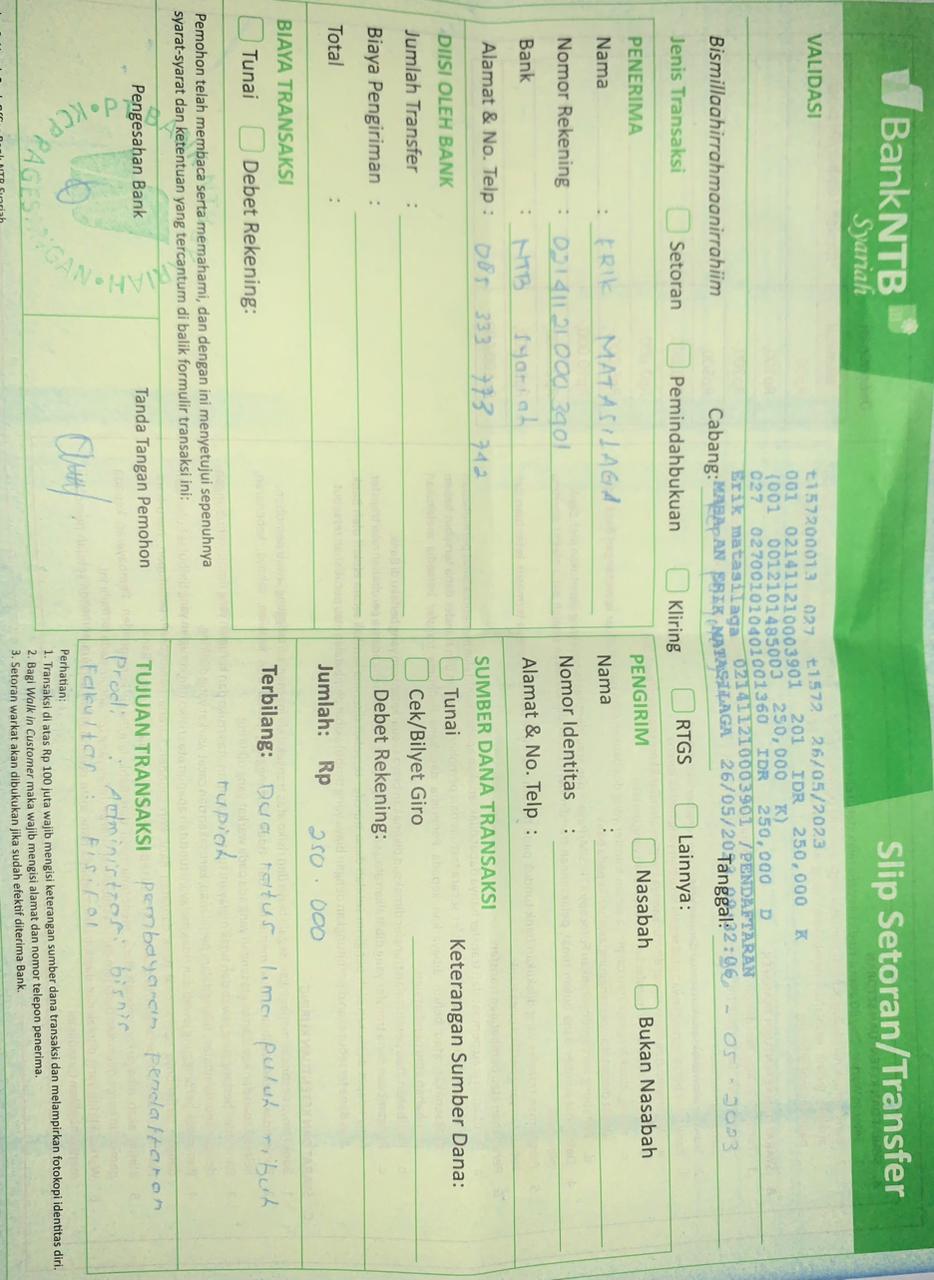 BankNTB
Syariah
Slip Setoran/Transfer
VALIDASI
t157200013 027 t1572 26/05/2023
001 0214112100003901 201 IDR 250,000 K
(001 0012101485003 250,000 K)
027 027001010401001360 IDR 250,000 D
Erik matasilaga 0214112100003901 /PENDAFTARAN
ERIK MATASILAGA 26/05/2023
Bismillaahirrahmaanirrahiim
Cabang:
Tanggal: - 05 - 2023
Jenis Transaksi
Setoran
Pemindahbukuan
Kliring
RTGS
Lainnya:
PENERIMA
Nama : ERIK MATASILAGA
Nomor Rekening : 02141121000 3901
Bank : NTB Syariah
Alamat & No. Telp : 085 333 773 742
PENGIRIM
Nasabah
Bukan Nasabah
Nama :
Nomor Identitas :
Alamat & No. Telp :
DIISI OLEH BANK
Jumlah Transfer :
Biaya Pengiriman :
Total :
SUMBER DANA TRANSAKSI
Tunai
Keterangan Sumber Dana:
Cek/Bilyet Giro
Debet Rekening:
BIAYA TRANSAKSI
Tunai
Debet Rekening:
Jumlah: Rp 250.000
Terbilang: Dua ratus lima puluh ribuh
rupiah
Pemohon telah membaca serta memahami, dan dengan ini menyetujui sepenuhnya
syarat-syarat dan ketentuan yang tercantum di balik formulir transaksi ini:
Pengesahan Bank
Tanda Tangan Pemohon
TUJUAN TRANSAKSI pembayaran pendaftaran
Prodi : Administrasi bisnis
Fakultas : Fisifol
Perhatian:
1. Transaksi di atas Rp 100 juta wajib mengisi keterangan sumber dana transaksi dan melampirkan fotokopi identitas diri.
2. Bagi Walk in Customer maka wajib mengisi alamat dan nomor telepon penerima.
3. Setoran warkat akan dibukukan jika sudah efektif diterima Bank.